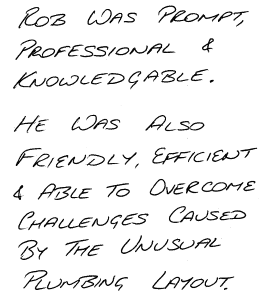 ROB WAS PROMPT,
PROFESSIONAL &
KNOWLEDGABLE.
HE WAS ALSO
FRIENDLY, EFFICIENT
& ABLE TO OVERCOME
CHALLENGES CAUSED
BY THE UNUSUAL
PLUMBING LAYOUT.